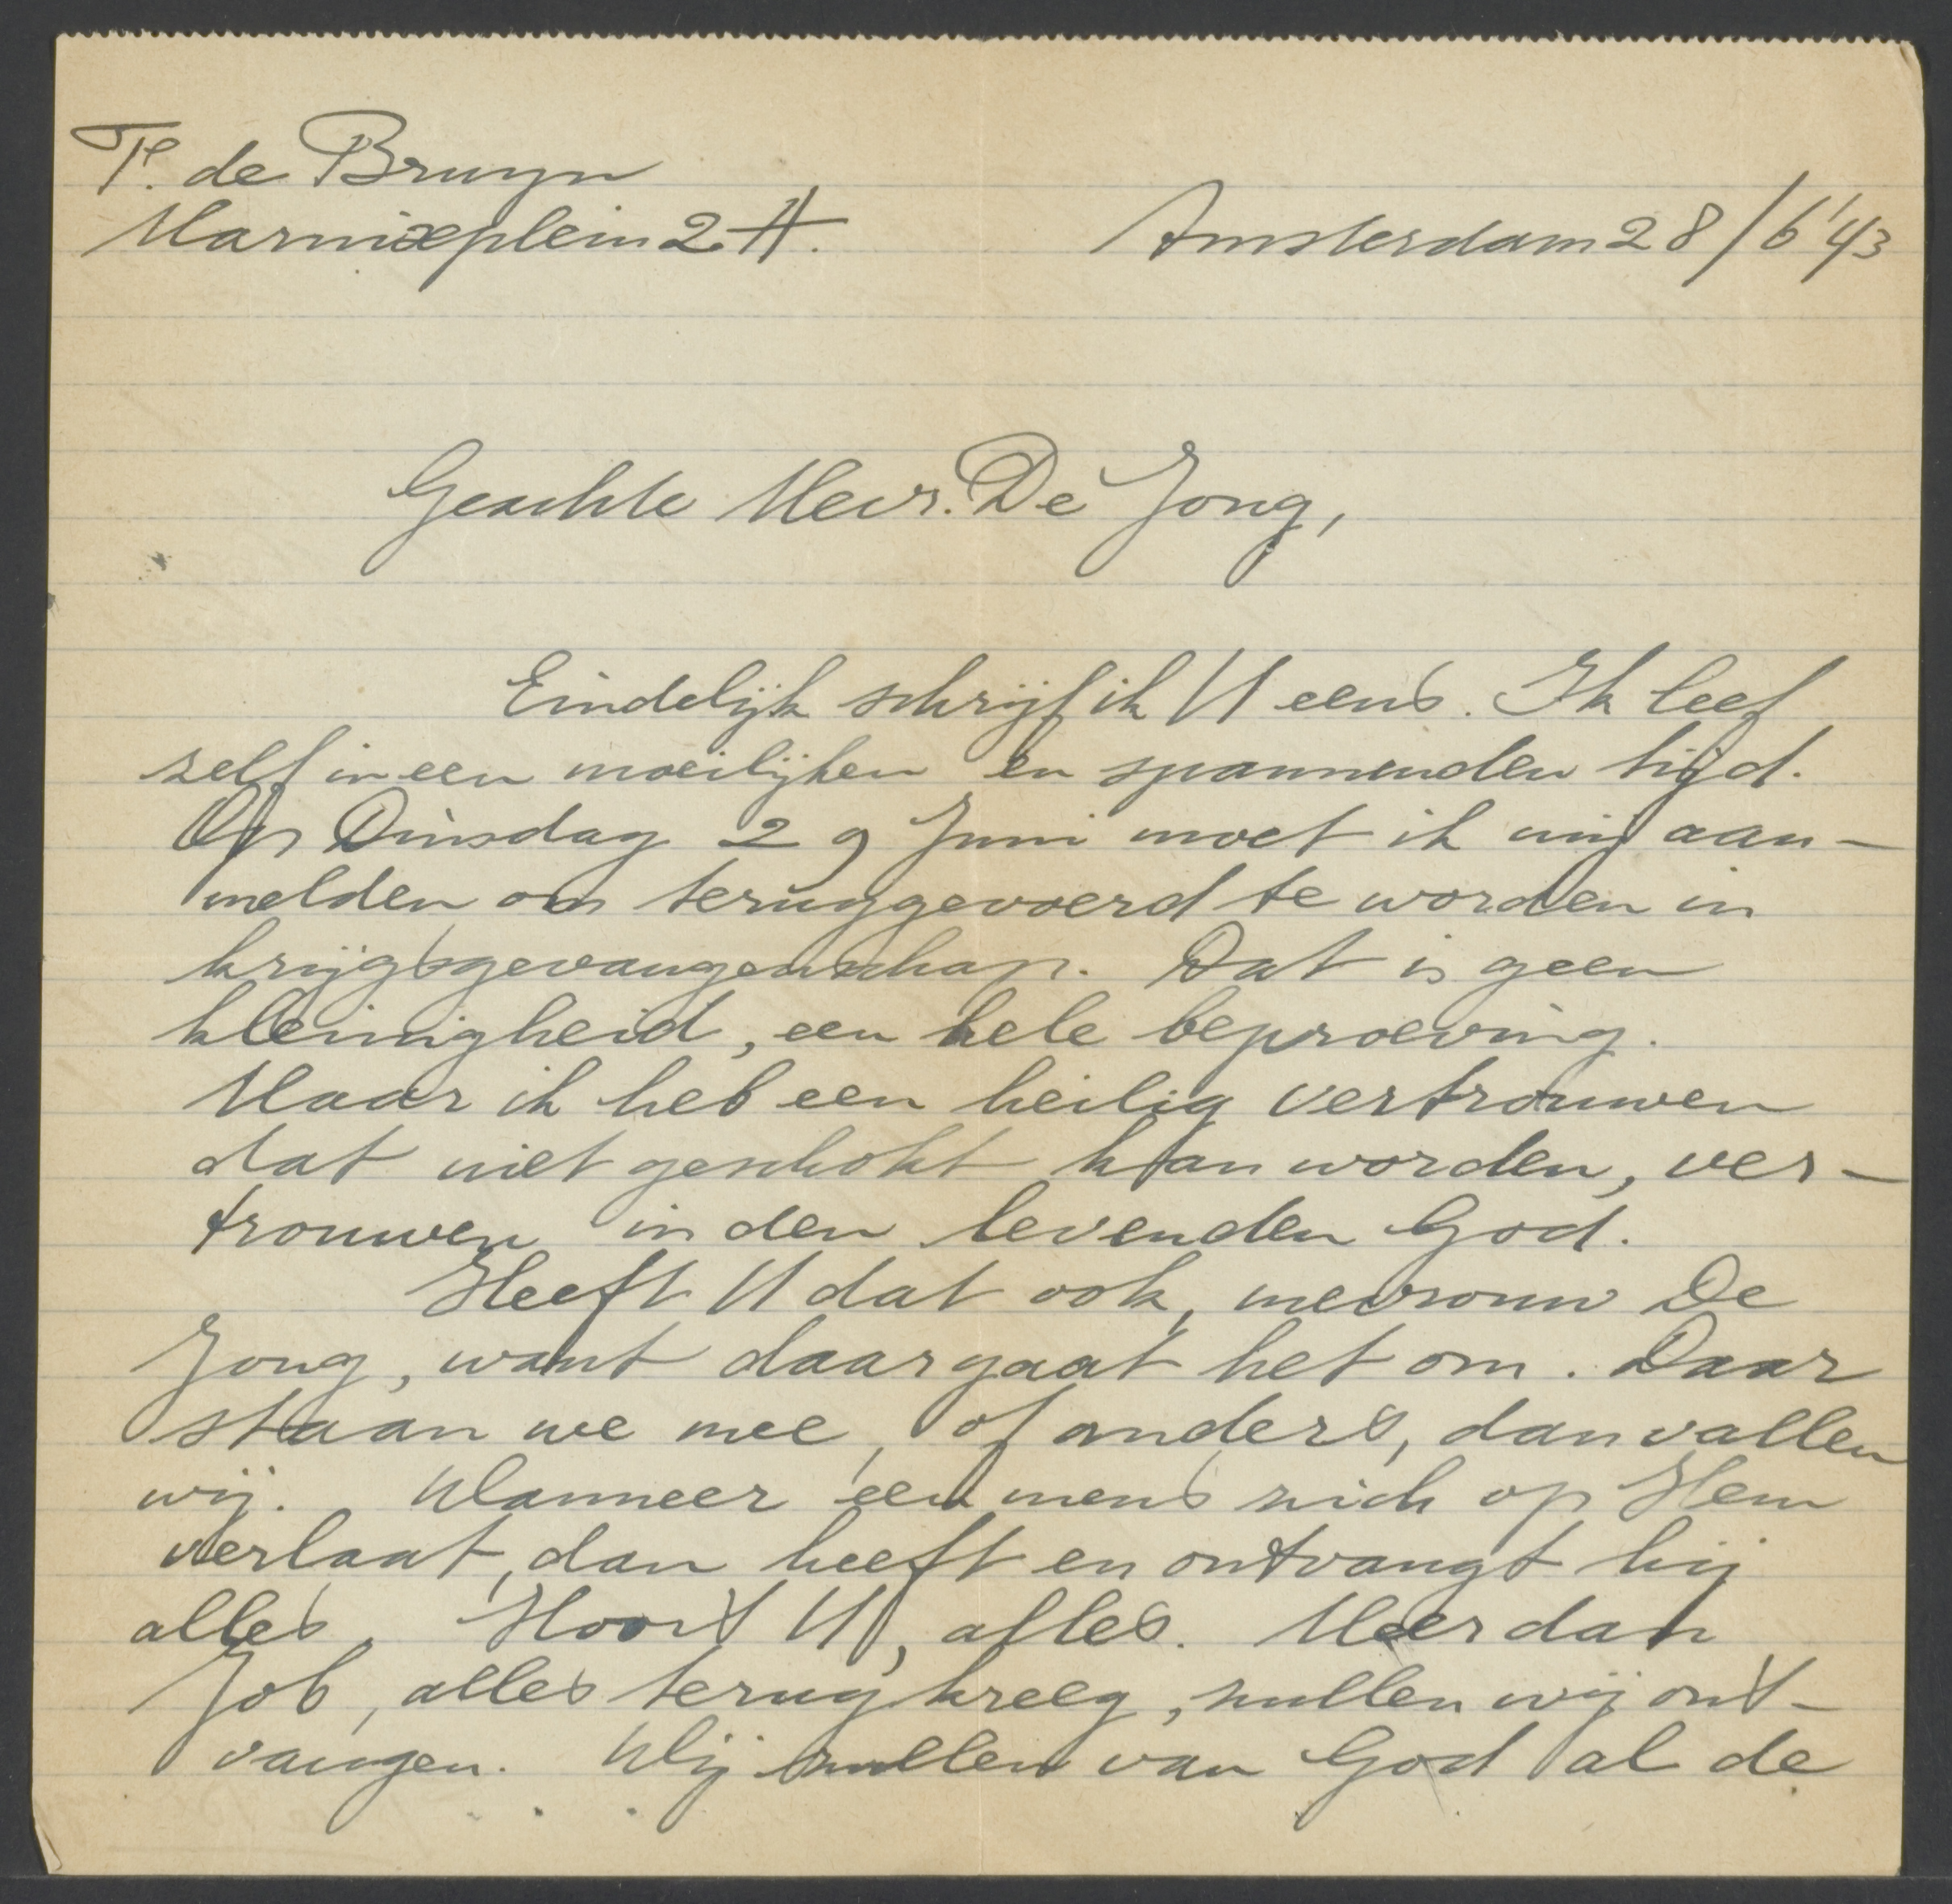 T. de Bruyn
Marnixplein 2 H. Amsterdam 28/6 '43
Geachte Mevr. De Jong,
Eindelijk schrijf ik U eens. Ik leef
zelf in een moeilijken en spannenden tijd.
Op Dinsdag 29 Juni moet ik mij aan-
melden om teruggevoerd te worden in
krijgsgevangenschap. Dat is geen
kleinigheid, een hele beproeving.
Maar ik heb een heilig vertrouwen
dat niet geschokt kan worden, ver-
trouwen in den levenden God.
Heeft U dat ook, mevrouw De
Jong, want daar gaat het om. Daar
staan we mee, of anders, dan vallen
wij. Wanneer een mens zich op Hem
verlaat, dan heeft en ontvangt hij
alles. Hoort U, alles. Meer dan
Job, alles terug kreeg, zullen wij ont-
vangen. Wij zullen van God al de